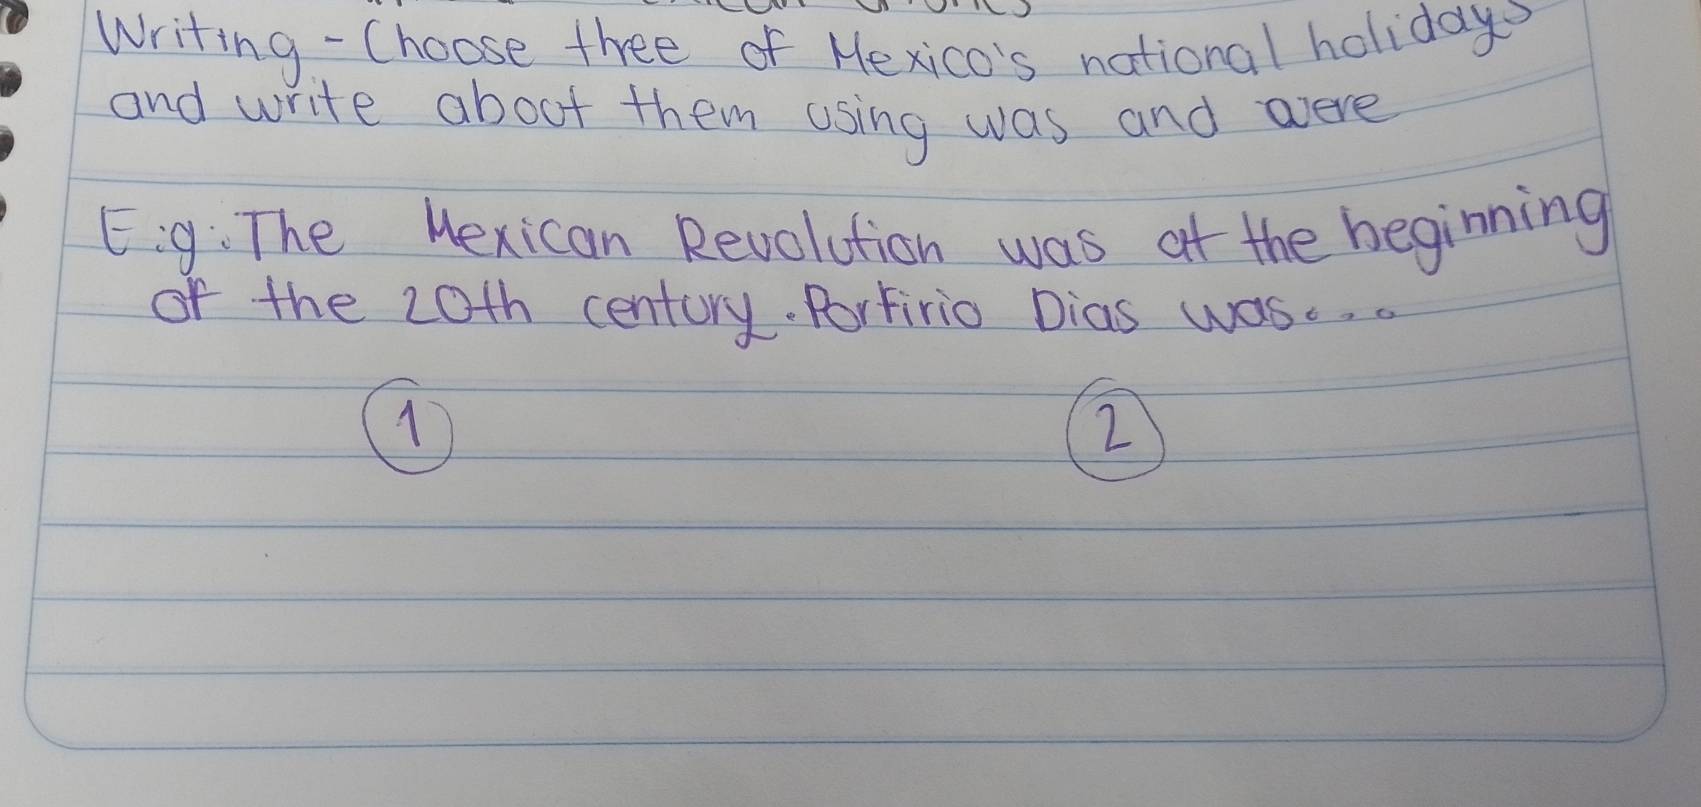 Writing - Choose three of Mexico's national holidays
and write about them using was and were
E.g.: The Mexican Revolution was at the beginning
of the 20th century. Porfirio Dias was...
1 2